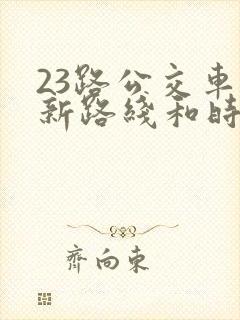 23路公交車
新路綫和時
齊向東